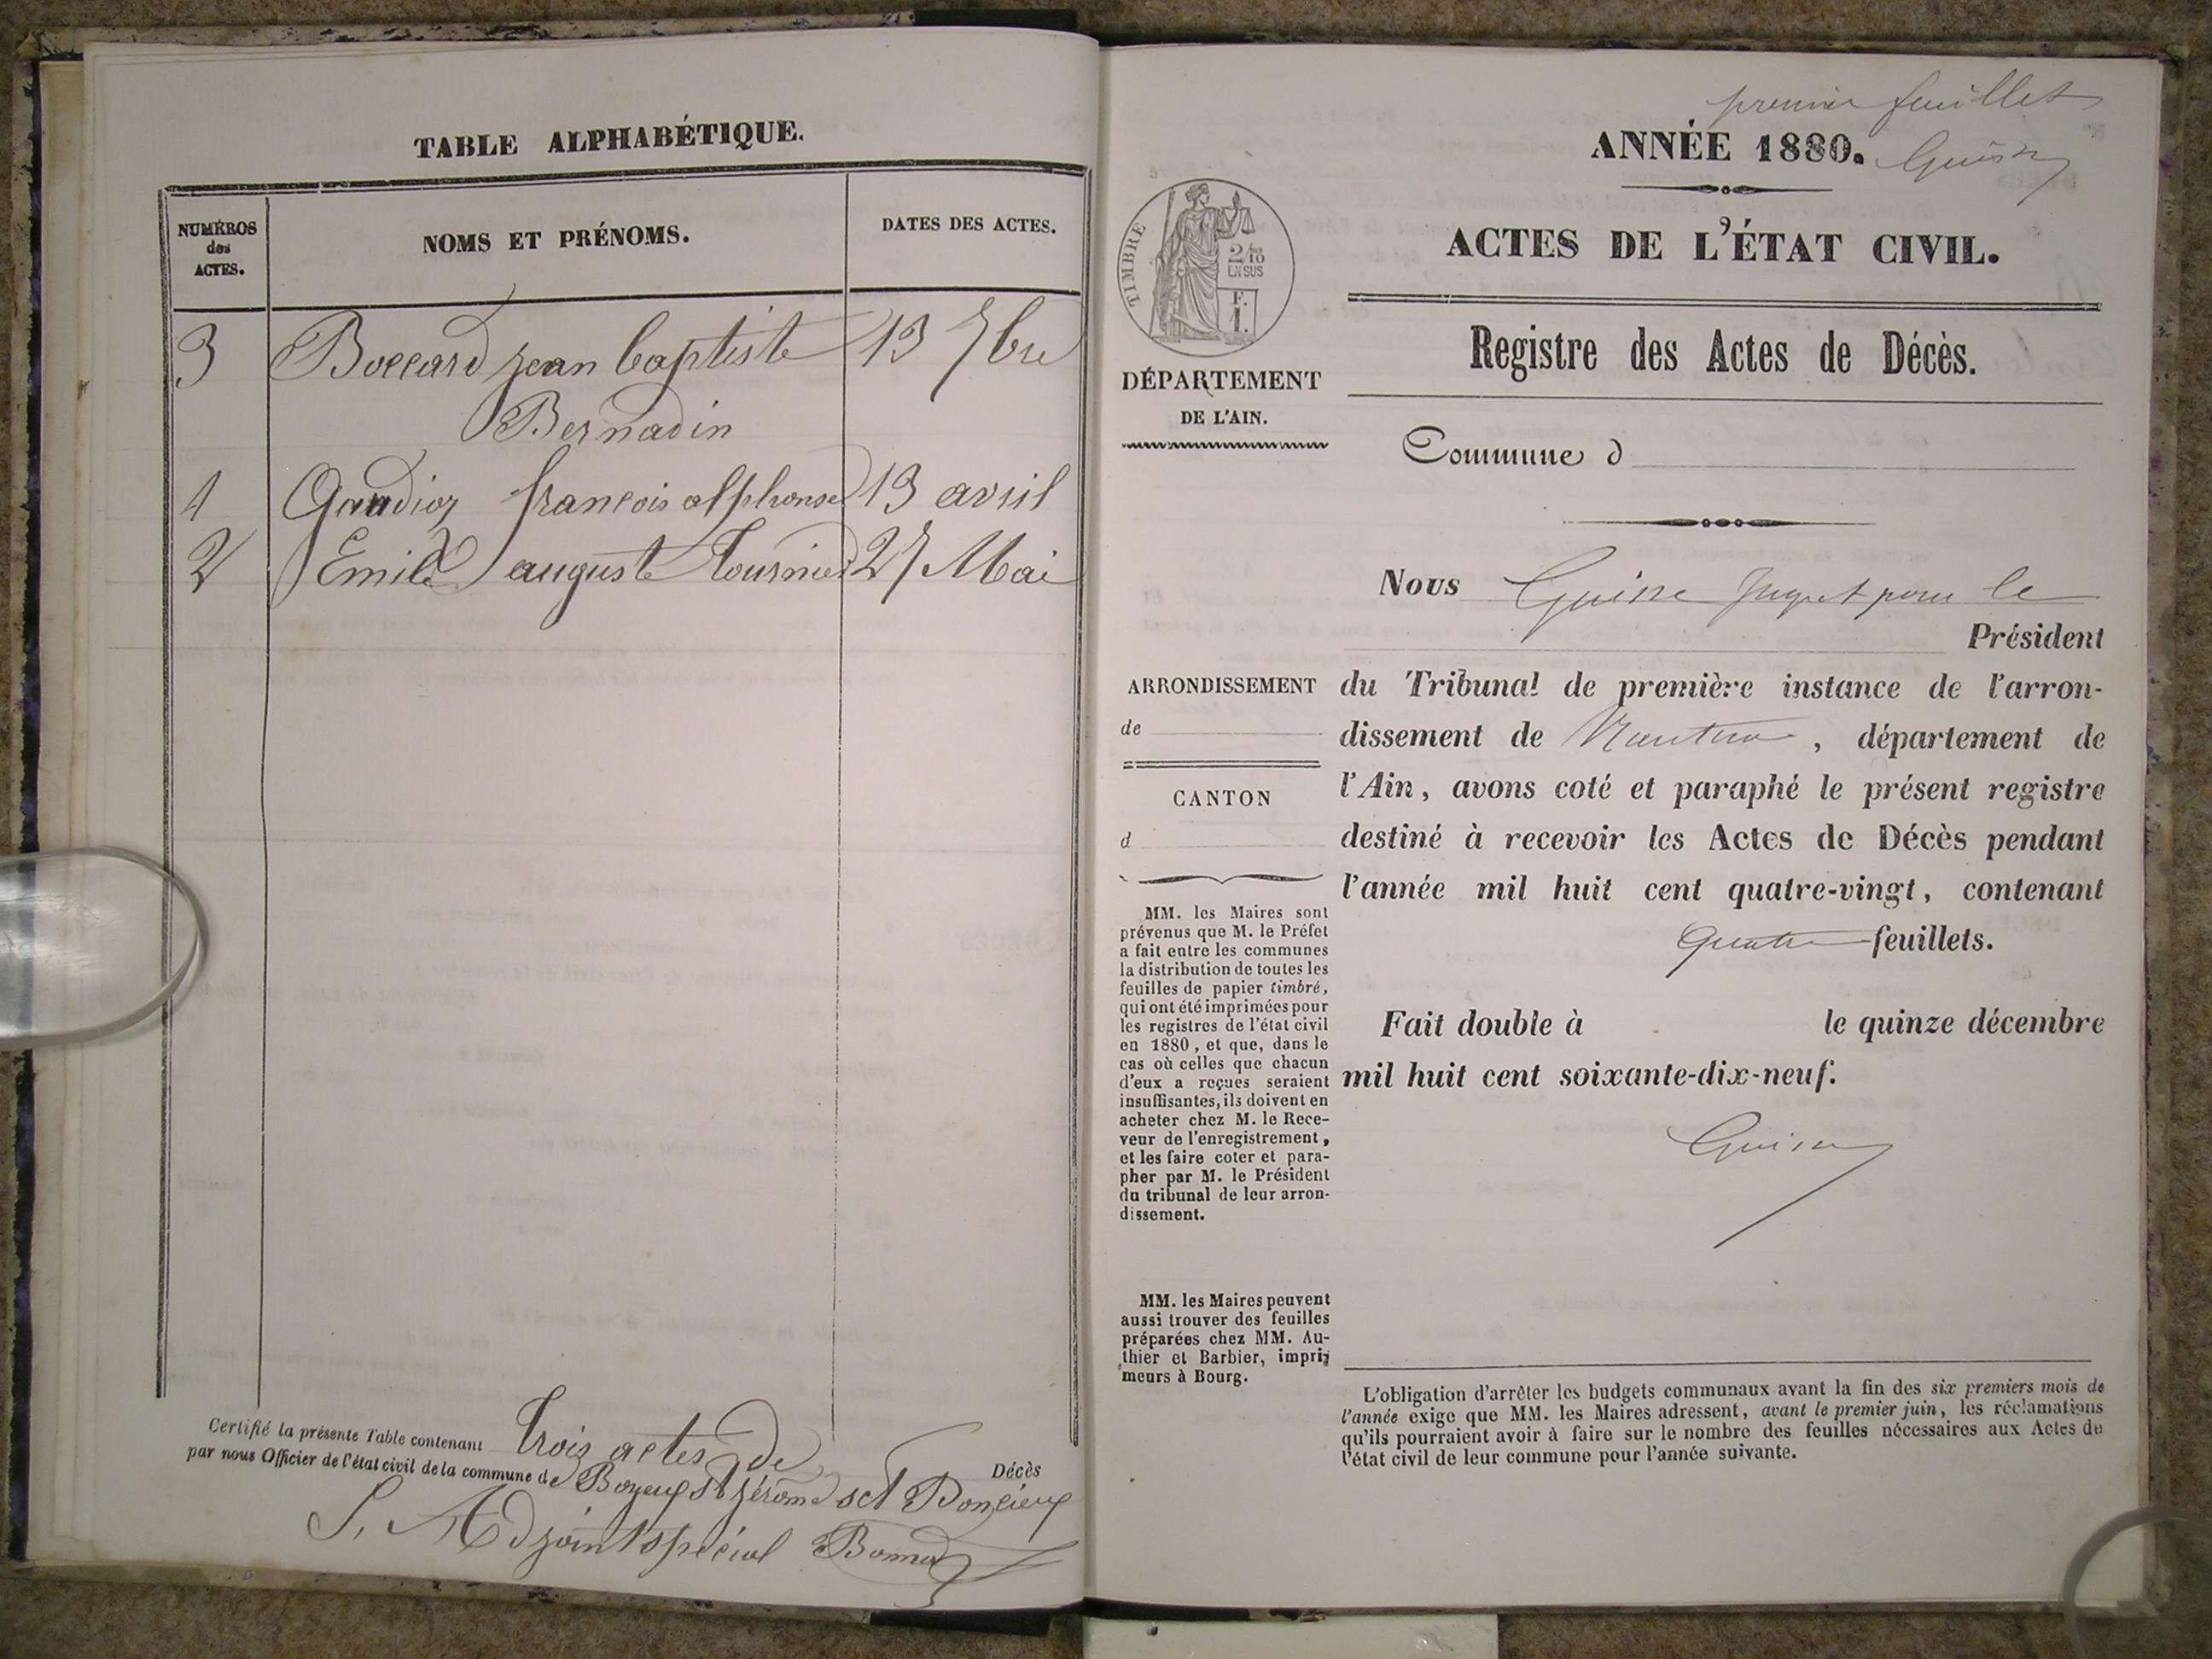 TABLE ALPHABÉTIQUE.
NUMÉROS
des
ACTES.
NOMS ET PRÉNOMS.
DATES DES ACTES.
3 Boccard jean baptiste 13 7bre
Bernadin
1 Gaudioz francois alphonse 13 avril
2 Emile auguste Tournier 27 Mai
Certifié la présente Table contenant trois actes de Décès
par nous Officier de l'état civil de la commune de Boyeux St jérome sct Poncieux
S, Adjoint spécial
premier feuillet
ANNÉE 1880.
ACTES DE L'ÉTAT CIVIL.
TIMBRE
2/10
EN SUS
F.
1.
DÉPARTEMENT
DE L'AIN.
Registre des Actes de Décès.
Commune d
ARRONDISSEMENT
de
CANTON
d
MM. les Maires sont
prévenus que M. le Préfet
a fait entre les communes
la distribution de toutes les
feuilles de papier timbré,
qui ont été imprimées pour
les registres de l'état civil
en 1880, et que, dans le
cas où celles que chacun
d'eux a reçues seraient
insuffisantes, ils doivent en
acheter chez M. le Rece-
veur de l'enregistrement,
et les faire coter et para-
pher par M. le Président
du tribunal de leur arron-
dissement.
MM. les Maires peuvent
aussi trouver des feuilles
préparées chez MM. Au-
thier et Barbier, impri-
meurs à Bourg.
Nous pour le
Président
du Tribunal de première instance de l'arron-
dissement de Nantua, département de
l'Ain, avons coté et paraphé le présent registre
destiné à recevoir les Actes de Décès pendant
l'année mil huit cent quatre-vingt, contenant
quatre feuillets.
Fait double à le quinze décembre
mil huit cent soixante-dix-neuf.
L'obligation d'arrêter les budgets communaux avant la fin des six premiers mois de
l'année exige que MM. les Maires adressent, avant le premier juin, les réclamations
qu'ils pourraient avoir à faire sur le nombre des feuilles nécessaires aux Actes de
l'état civil de leur commune pour l'année suivante.